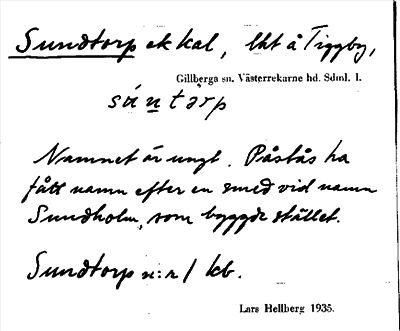 Sundtorp ek kal, lht å Tiggby,
Gillberga sn. Västerrekarne hd. Sdml. l.
sún̲tàrp
Namnet är ungt. Påstås ha
fått namn efter en smed vid namn
Sundholm, som byggde stället.
Sundtorp n:r 1 kb.
Lars Hellberg 1935.